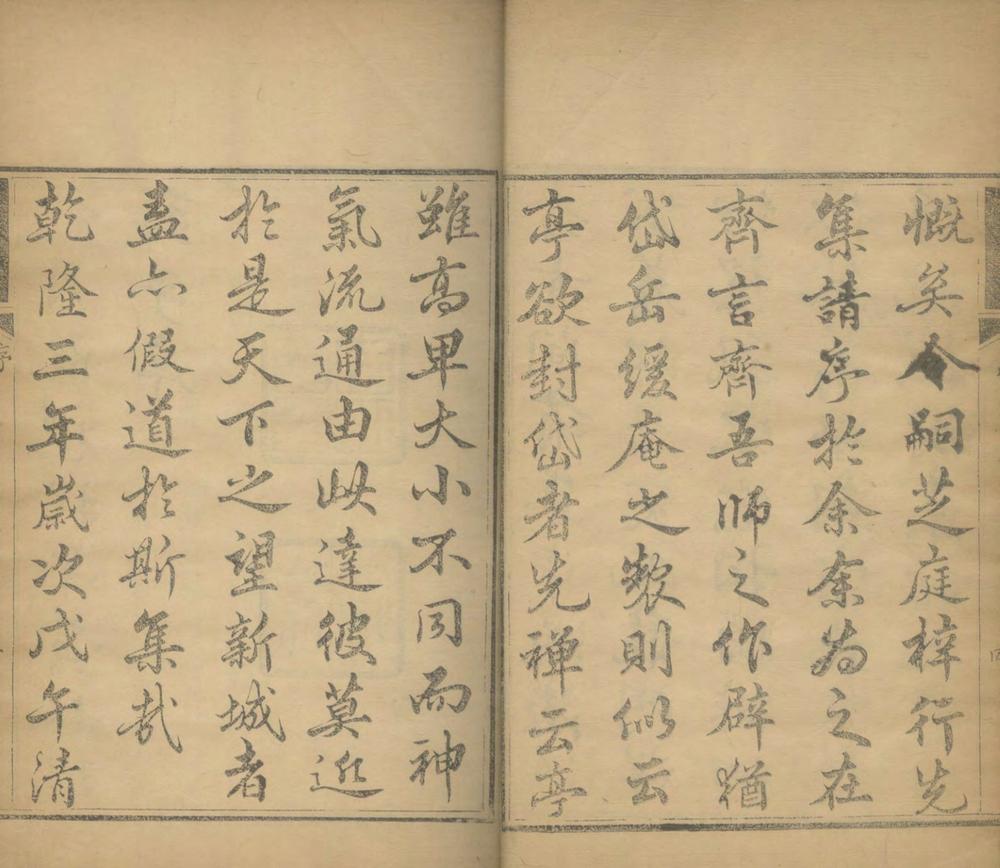 慨矣令嗣芝庭梓行先
集請序於余余為之在
齊言齊吾師之作辟猶
岱岳緩庵之製則似云
亭欲封岱者先禅云亭
雖高卑大小不同而神
氣流通由此達彼莫近
於是天下之望新城者
盖亦假道於斯集哉
乾隆三年歲次戊午清
序